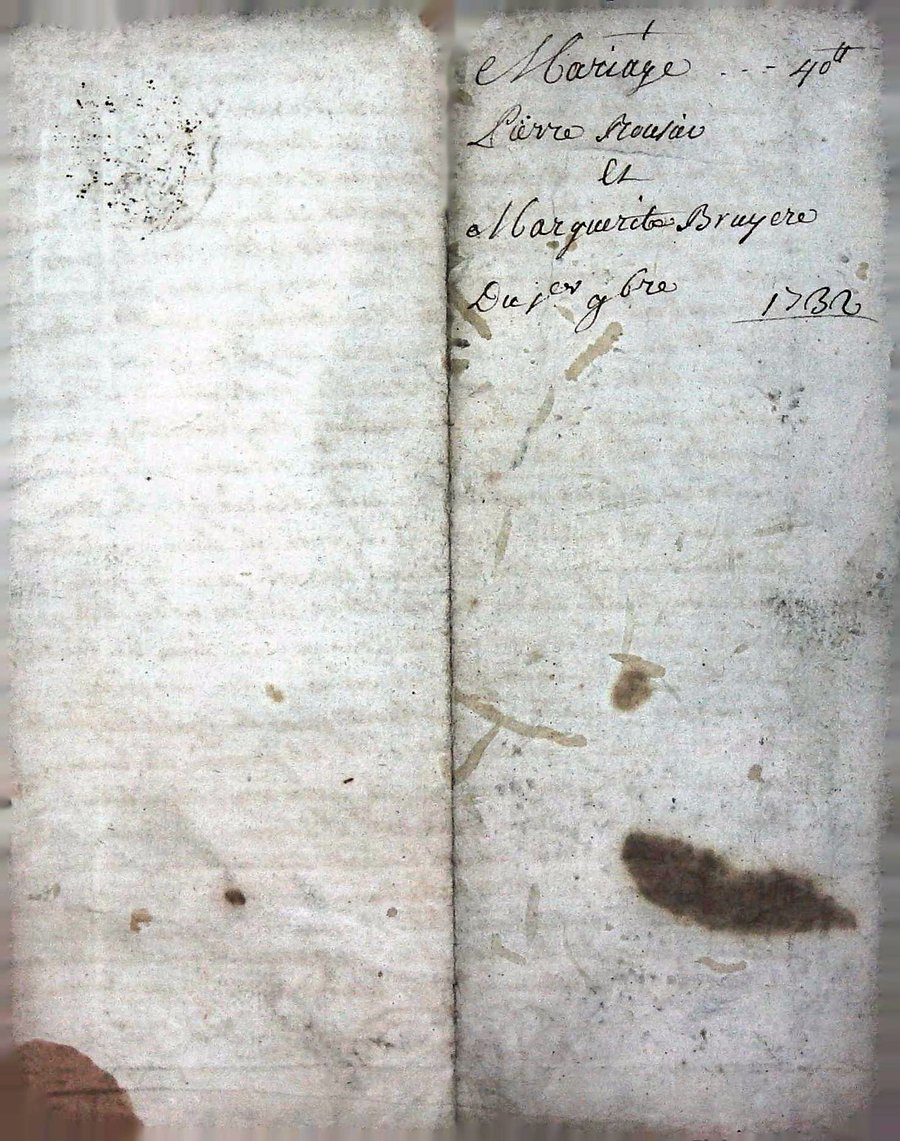 Mariage - - - 40tt
Pierre
Et
Marguerite Bruyere
Du 1er 9bre 1732